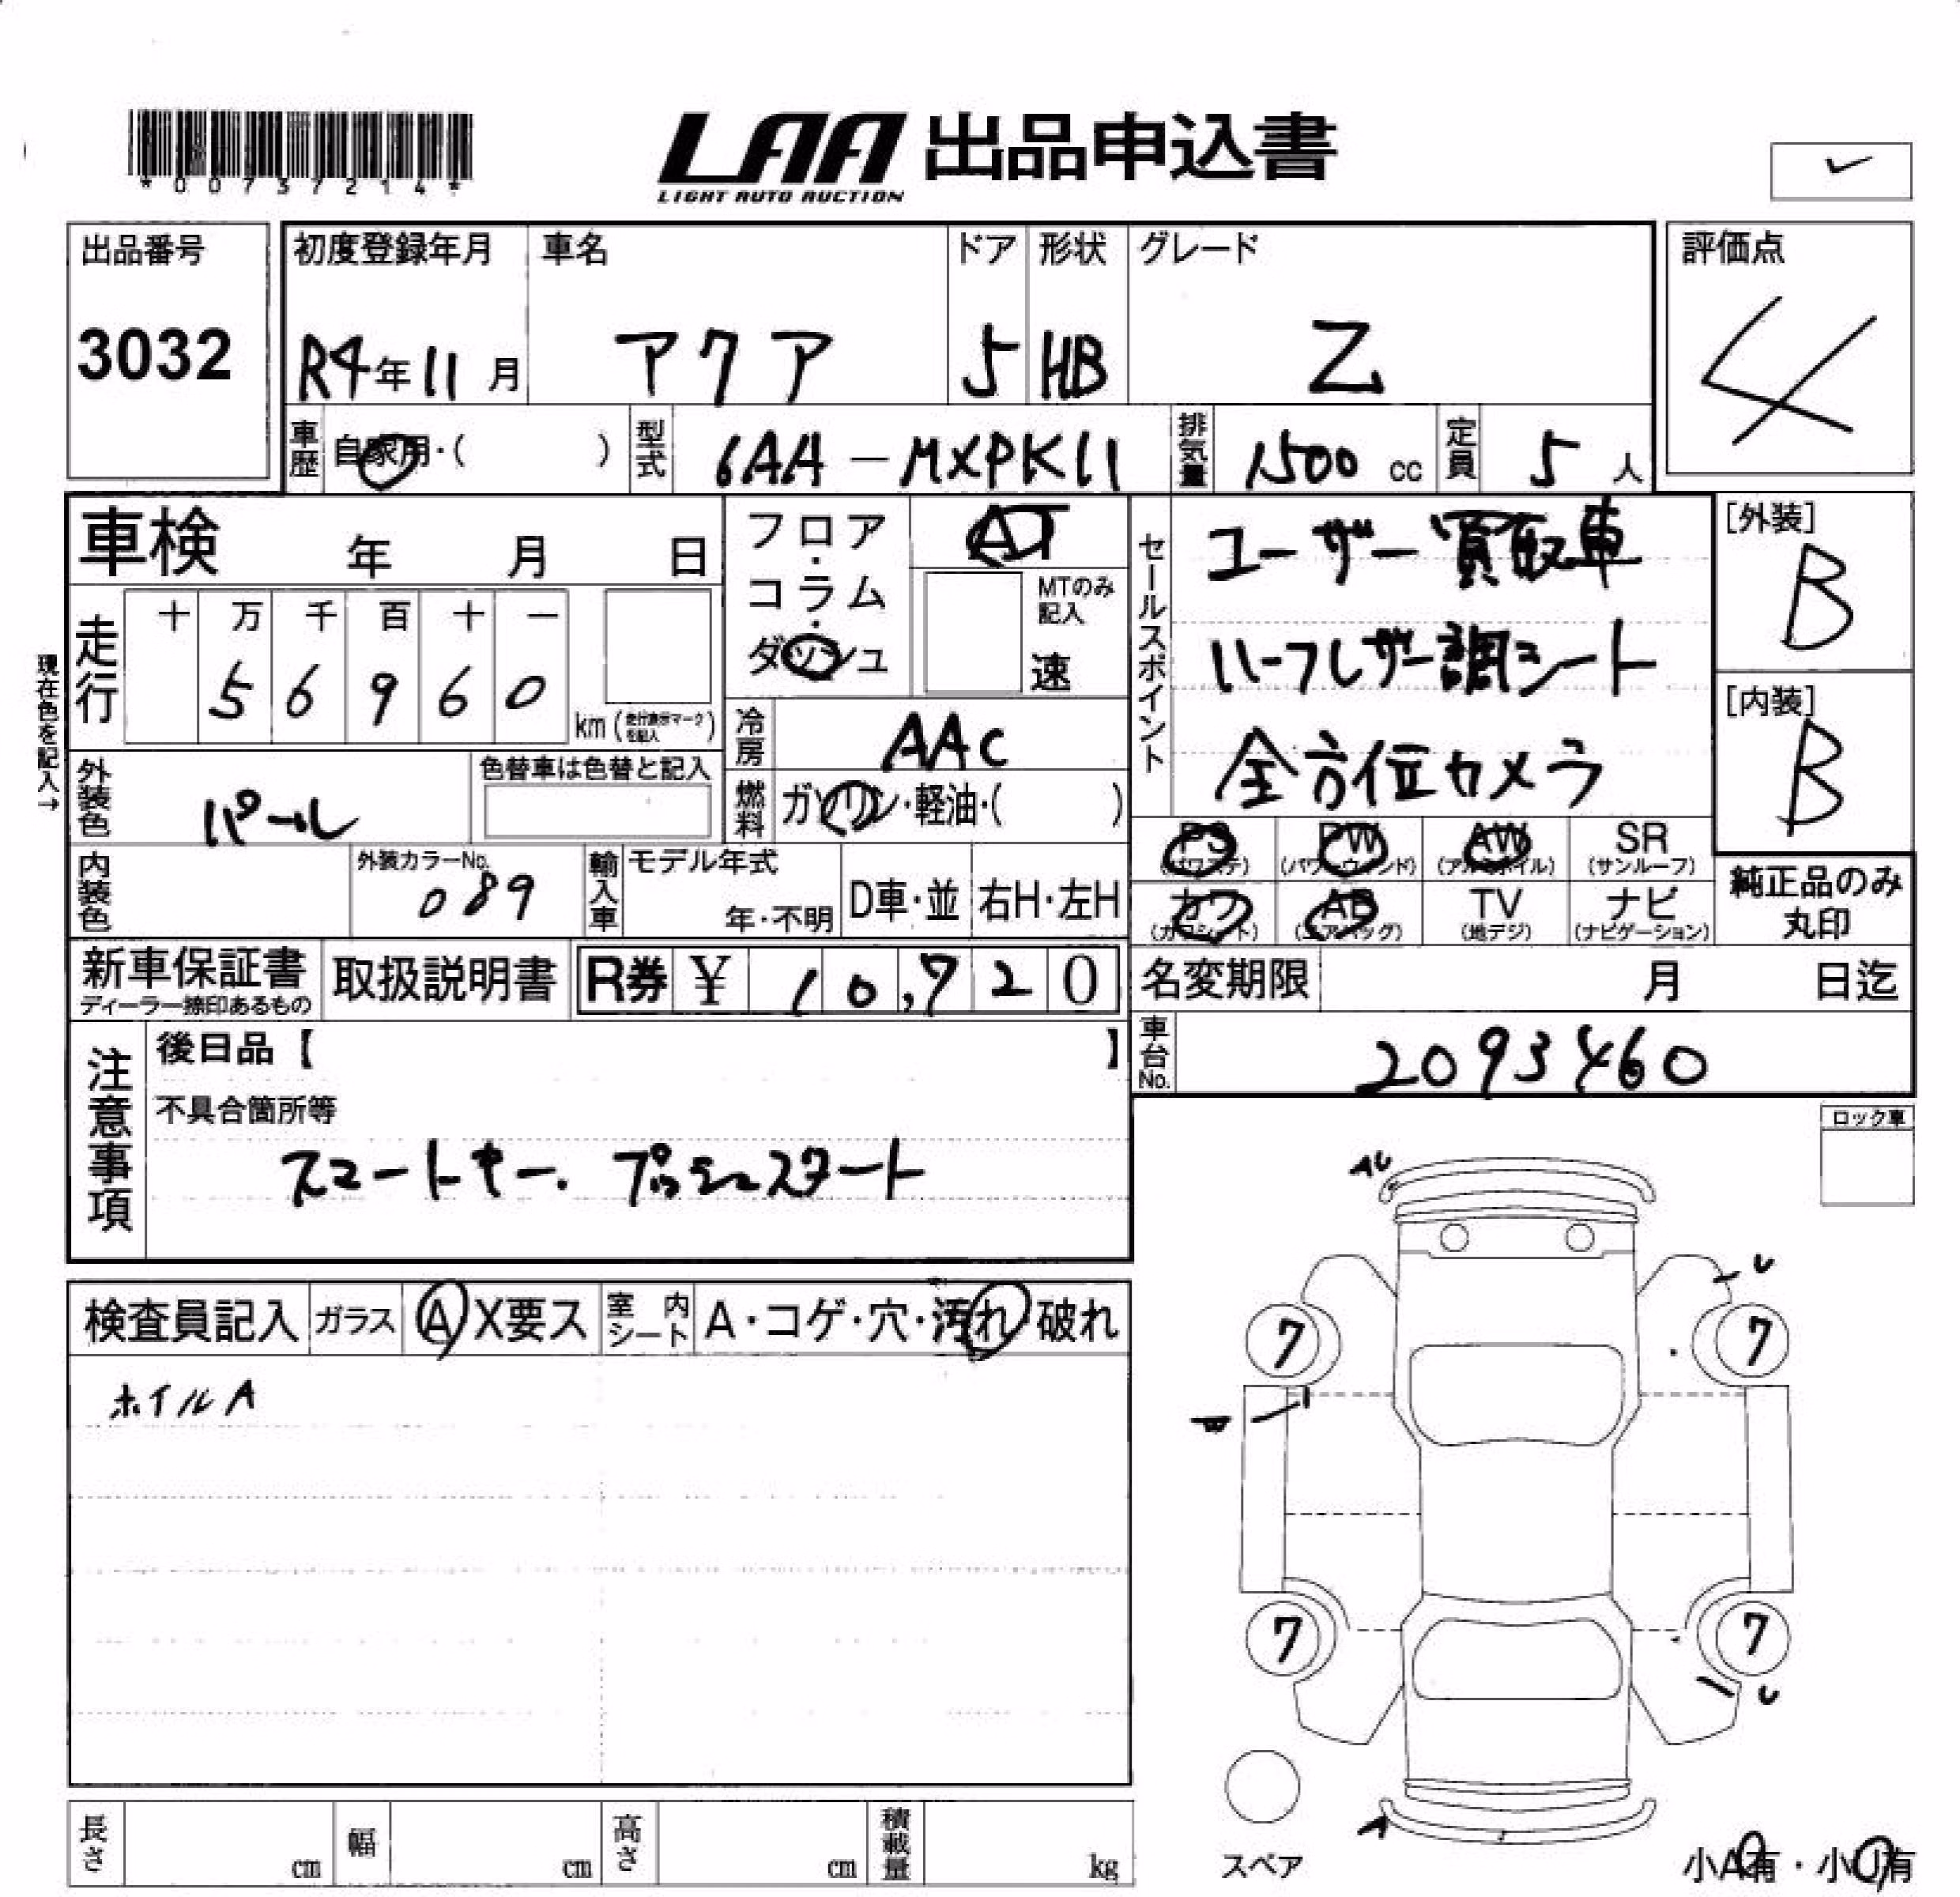 *00737214*
LAA 出品申込書
LIGHT AUTO AUCTION
出品番号 3032
初度登録年月 R4年11月
車名 アクア
ドア 5
形状 HB
グレード Z
評価点 4
車歴 自家用・( )
型式 6AA-MXPK11
排気量 1500 cc
定員 5 人
車検 年 月 日
フロア・コラム・ダッシュ
AT
MTのみ記入 速
セールスポイント
ユーザー買取車
ハーフレザー調シート
全方位カメラ
[外装] B
[内装] B
現在色を記入→
走行 十 万 千 百 十 一
5 6 9 6 0
km (走行表示マークを記入)
冷房 AAC
燃料 ガソリン・軽油・( )
外装色 パール
色替車は色替と記入
内装色
外装カラーNo. 089
輸入車 モデル年式 年・不明
D車・並 右H・左H
PS (パワステ)
PW (パワーウィンド)
AW (アルミホイル)
SR (サンルーフ)
カワ (カワシート)
AB (エアバッグ)
TV (地デジ)
ナビ (ナビゲーション)
純正品のみ丸印
新車保証書
ディーラー捺印あるもの
取扱説明書
R券 ¥ 10,720
名変期限 月 日迄
車台No. 2093460
注意事項
後日品【 】
不具合箇所等
スマートキー. プッシュスタート
ロック車
検査員記入 ガラス A X要ス
室内シート A・コゲ・穴・汚れ 破れ
ホイルA
AU
U
7 7
7 7
U
A
スペア
小A有・小U有
長さ cm
幅 cm
高さ cm
積載量 kg